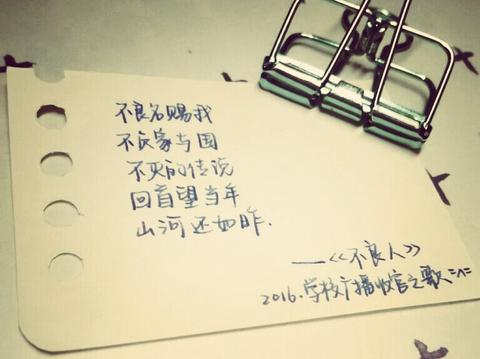 不良名赐我
不民家与国
不灭的传说
回首望当年
山河还如昨.
——《不良人》
2016.学校广播收官之歌=^=